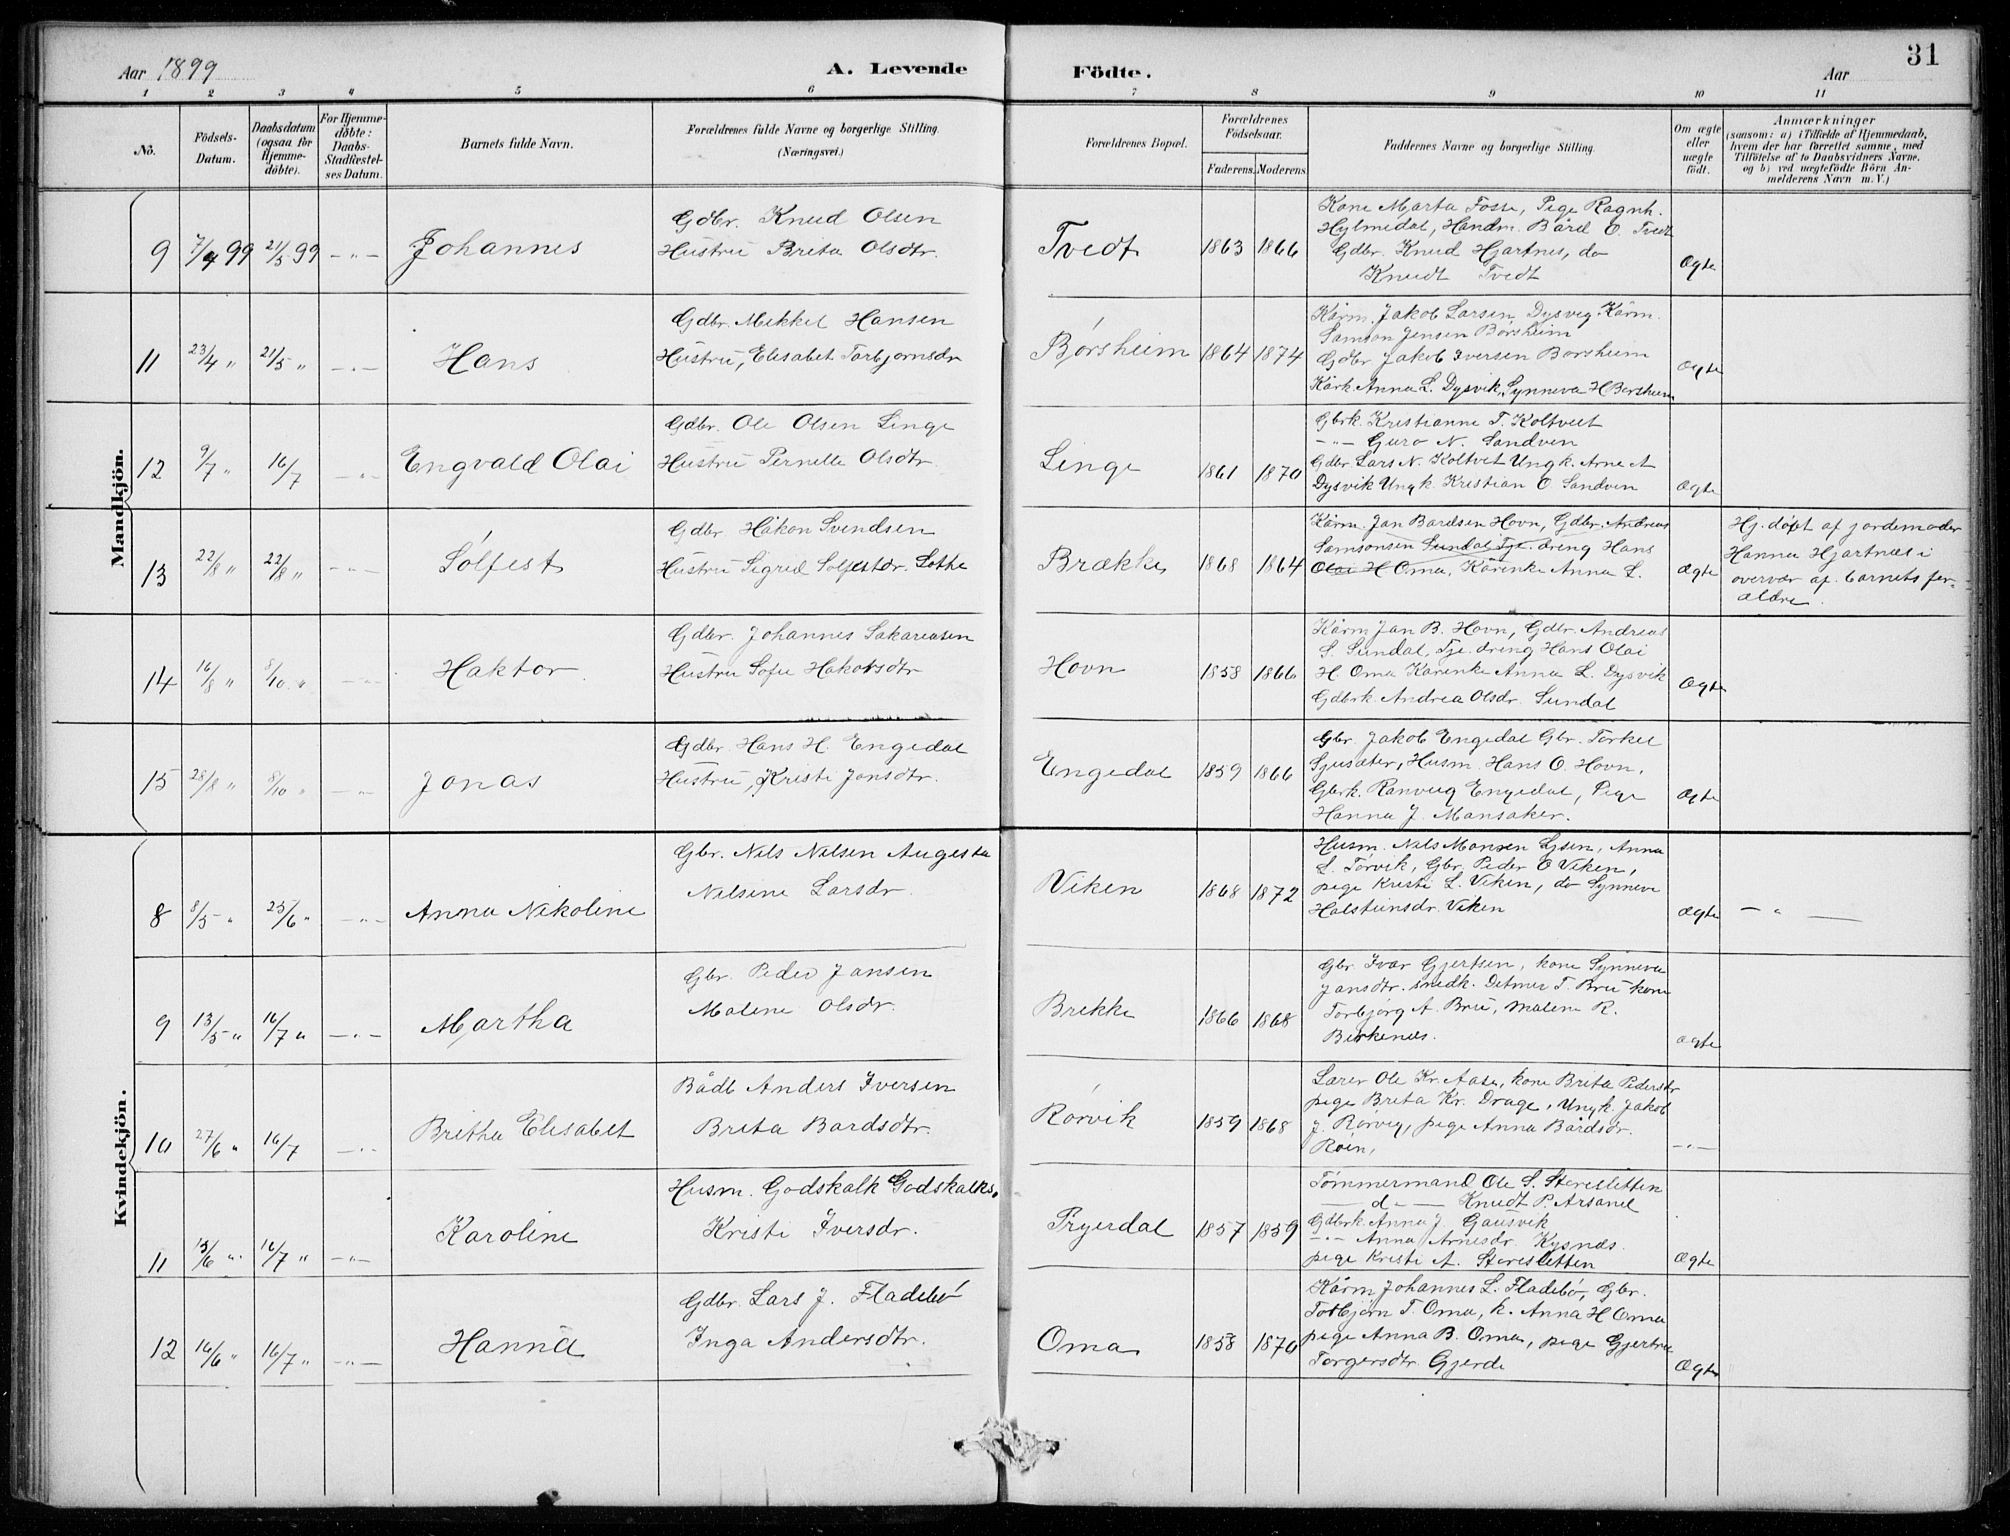 Aar 1899
A. Levende Födte.
Aar
31
1 2 3 4 5 6 7 8 9 10 11
No.
Födsels-Datum.
Daabsdatum (ogsaa for Hjemmedöbte).
For Hjemmedöbte: Daabs-Stadfæstelses Datum.
Barnets fulde Navn.
Forældrenes fulde Navne og borgerlige Stilling. (Næringsvei.)
Forældrenes Bopæl.
Forældrenes Födselsaar.
Faderens. Moderens.
Faddernes Navne og borgerlige Stilling.
Om ægte eller uægte födt.
Anmærkninger
(saasom: a) i Tilfælde af Hjemmedaab, hvem der har forrettet samme, med Tilföielse af to Daabsvidners Navne. og b) ved uægtefödte Börn Anmelderens Navn m. V.)
Mandkjön.
9 7/4 99 21/5 99 -"- Johannes
Gdbr. Knud Olsen
Hustru Brita Olsdtr.
Tvedt 1863 1866
Kone Marta Fosse, Pige Ragnh.
Hylmedal, Handm. Bård O. Tvedt
Gdbr. Knud Hjartnes, do
Knudt Tvedt
Ægte
11 23/4 " 21/5 " -"- Hans
Gdbr. Mikkel Hansen
Hustru, Elisabet Torbjornsdr
Børsheim 1864 1874
Kårm. Jakob Larsen Dysvig, Kårm.
Samson Jensen Børsheim
Gdbr Jakob Iversen Borsheim
Kårk. Anna L. Dysvik, Synneva H Borsheim
Ægte
12 9/7 " 16/7 -"- Engvald Olai
Gdbr. Ole Olsen Linge
Hustru Pernelle Olsdtr.
Linge 1861 1870
Gbrk. Kristianne T. Koltveit
-"- Guro N. Sandven
Gdbr Lars N. Koltvet Ungk. Arne A
Dysvik Ungk. Kristian O Sandven
Ægte
13 22/8 " 22/8 " -"- Sølfest
Gdbr Håkon Svendsen
Hustru Sigrid Solfestdr. Lothe
Brække 1868 1864
Kårm. Jan Bardsen Hovn, Gdbr. Andreas
Samsonsen Sundal Tje. dreng Hans
Olai H Oma, Kårenke Anna L.
Ægte
Hj. døbt af jordemoder
Hanna Hjartnæs i
overvær af barnets for-
ældre.
14 16/8 " 8/10 " -"- Haktor
Gdbr. Johannes Sakariasen
Hustru Sofie Hakonsdtr
Hovn 1858 1866
Kårm Jan B. Hovn, Gdbr. Andreas
S. Sundal, Tje. dreng Hans Olai
H. Oma Kårenke Anna L. Dysvik
Gdbrk. Andrea Olsdr. Sundal
Ægte
15 28/8 " 8/10 " -"- Jonas
Gdbr. Hans H. Engedal
Hustru, Kristi Jonsdtr.
Engedal 1859 1866
Gbr. Jakob Engedal Gbr. Torkel
Sjusæter, Husm. Hans O. Hovn,
Gbrk. Ranveig Engedal, Pige
Hanna J. Mansaker.
Ægte
Kvindekjön.
8 8/5 " 25/6 " -"- Anna Nikoline
Gbr. Nils Nilsen Augesta
Nilsine Larsdr.
Viken 1868 1872
Husm. Nils Monsen Lysen, Anna
L. Torvik, Gbr. Peder O Viken,
pige Kristi L. Viken, do Synneve
Halsteinsdr. Viken
Ægte
- " -
9 13/5 " 16/7 " -"- Martha
Gbr. Peder Jansen
Malene Olsdr.
Brekke 1866 1868
Gbr. Ivar Gjertsen, kone Synneva
Jansdtr. smedk. Detmer T. Bru kone
Torbjørg A. Bru, Malene R.
Birkenæs.
ægte
10 27/6 " 16/7 -"- Britha Elisabet
Bådb Anders Iversen
Brita Bardsdtr.
Rorvik 1859 1868
Lærer Ole Kr. Aase, kone Brita Pedersdr
pige Brita Kr. Drage, Ungk. Jakob
J. Rørvig, pige Anna Bårdsdr.
Røen,
-"-
11 15/6 " 16/7 " -"- Karoline
Husm. Godskalk Godskalks.
Kristi Iversdr.
Pryerdal 1857 1859
Tømmermand Ole S. Steresletten
— d — Knudt P. Arsand
Gdbrk Anna J. Gausvik
-"- Anna Arnesdr. Kysnæs.
pige Kristi A. Steresletten
Ægte
12 16/6 " 16/7 " -"- Hanna
Gdbr. Lars J. Fladebø
Inga Andersdtr.
Oma 1858 1870
Kårm Johannes L. Fladebø, Gbr.
Torbjørn T. Oma, k. Anna H Oma
pige Anna B. Oma, pige Gjertrue
Torgersdtr. Gjerde
Ægte